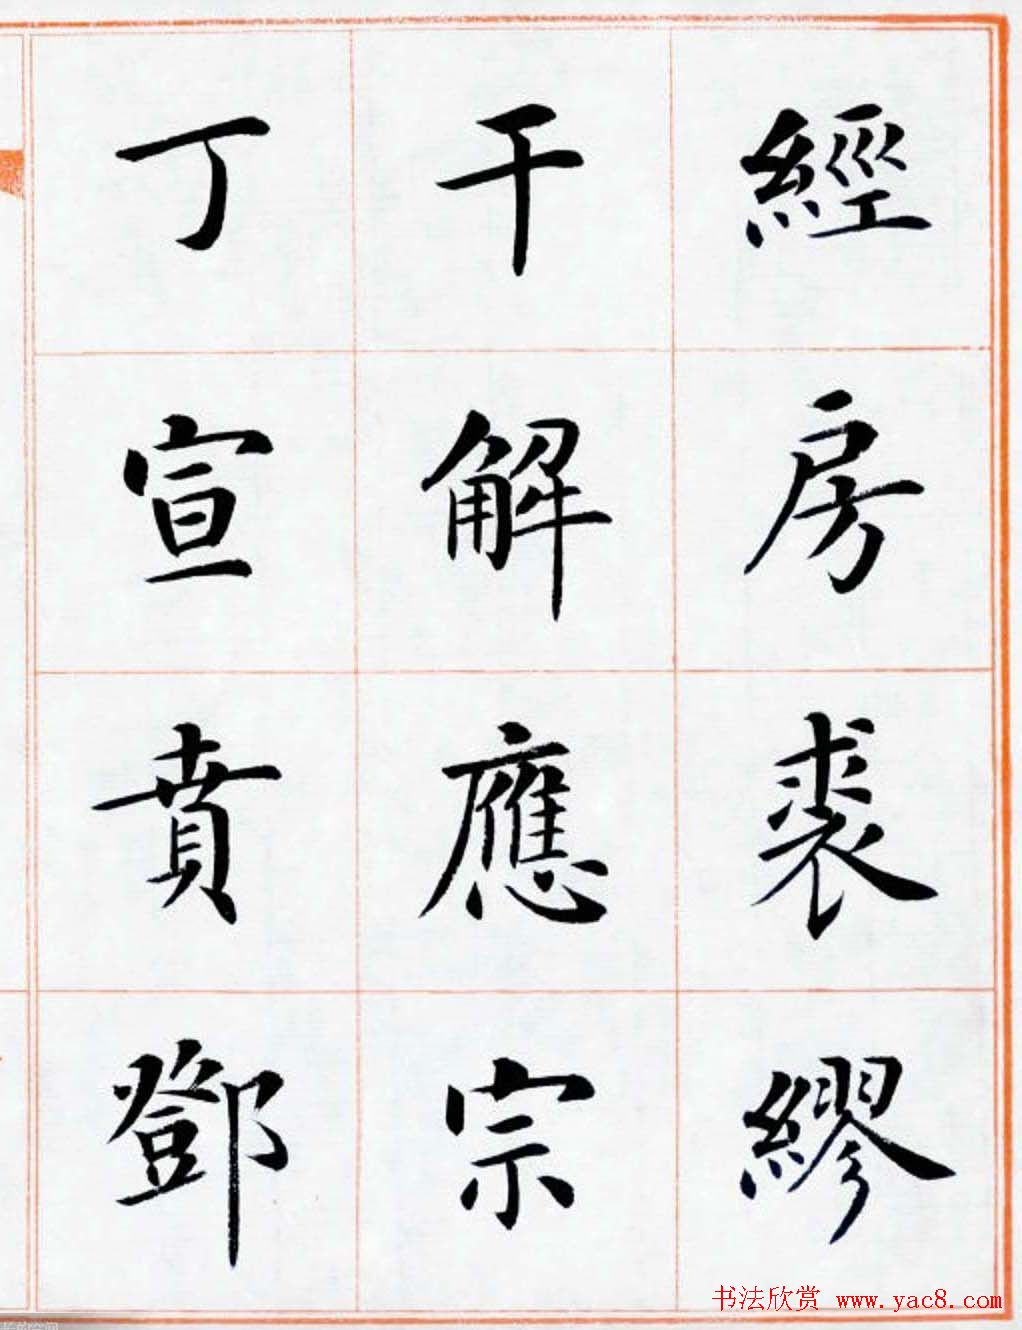 經房裘繆
干解應宗
丁宣賁鄧
书法欣赏 www.yac8.com